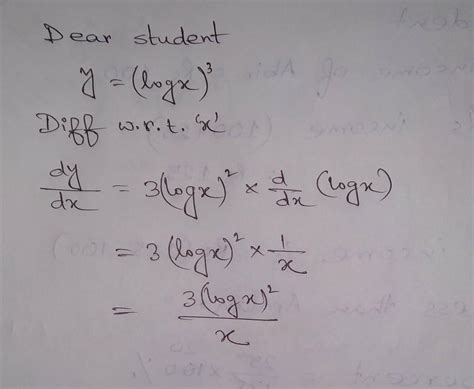 Dear student
y = (logx)³
Diff w.r.t. 'x'
dy/dx = 3(logx)² × d/dx (logx)
= 3(logx)² × 1/x
= 3(logx)²/x